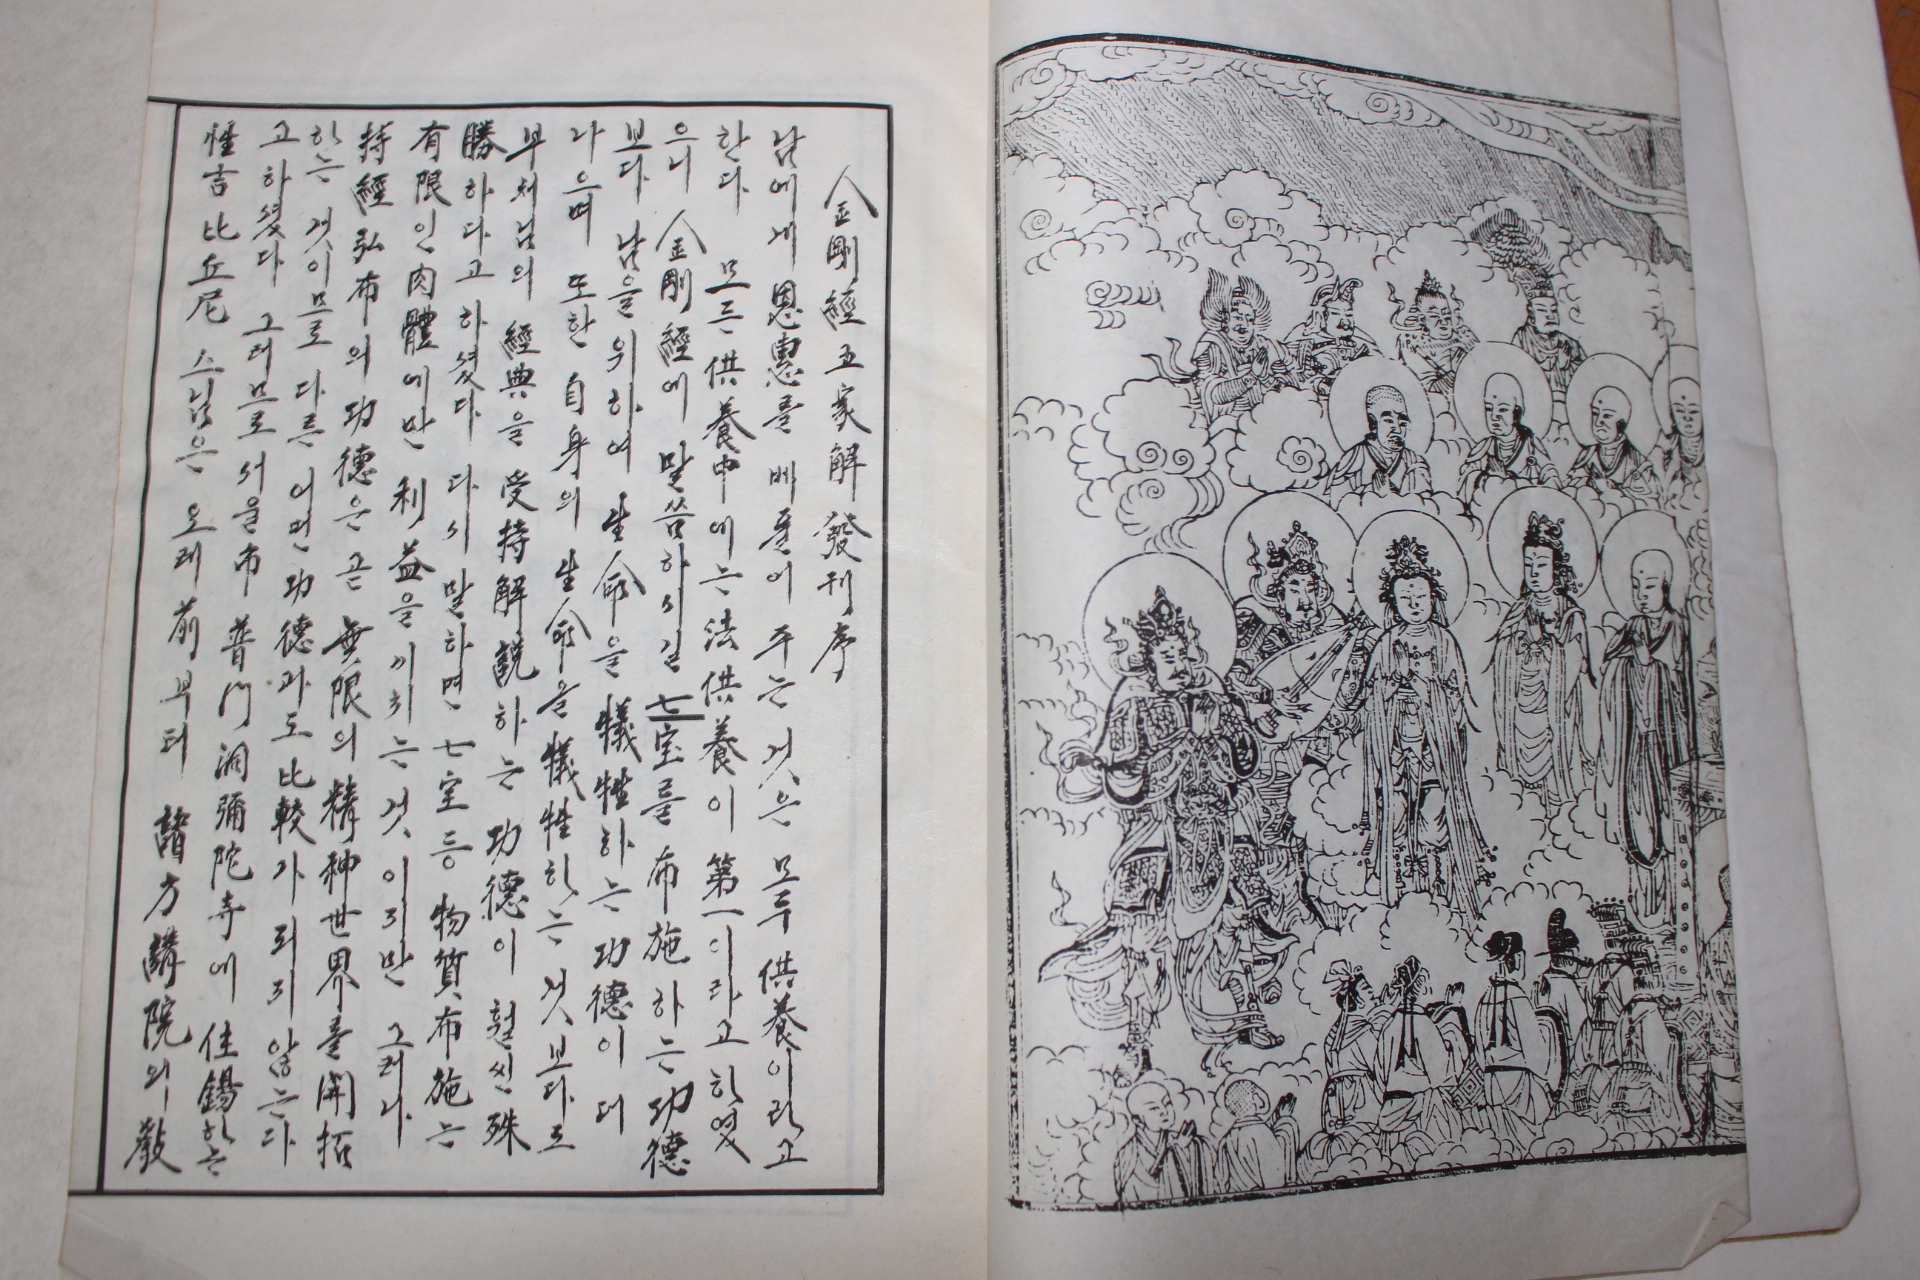 金剛經五家解發刊序
남에게 恩惠를 베풀어 주는 것은 모두 供養이라고
한다 모든 供養中에는 法供養이 第一이라고 하였
으니 金剛經에 말씀하시길 七宝를 布施하는 功德
보다 남을 위하여 生命을 犧牲하는 功德이 더
나으며 또한 自身의 生命을 犧牲하는 것보다도
부처님의 經典을 受持解說하는 功德이 훨씬 殊
勝하다고 하셨다 다시 말하면 七宝等 物質布施는
有限인 肉體에만 利益을 끼치는 것이지만 그러나
持經弘布의 功德은 곧 無限의 精神世界를 開拓
하는 것이므로 다른 어떤 功德과도 比較가 되지 않는다
고 하셨다 그러므로 서울市 普門洞 彌陀寺에 住錫하는
性吉 比丘尼 스님은 오래 前부터 諸方講院의 敎